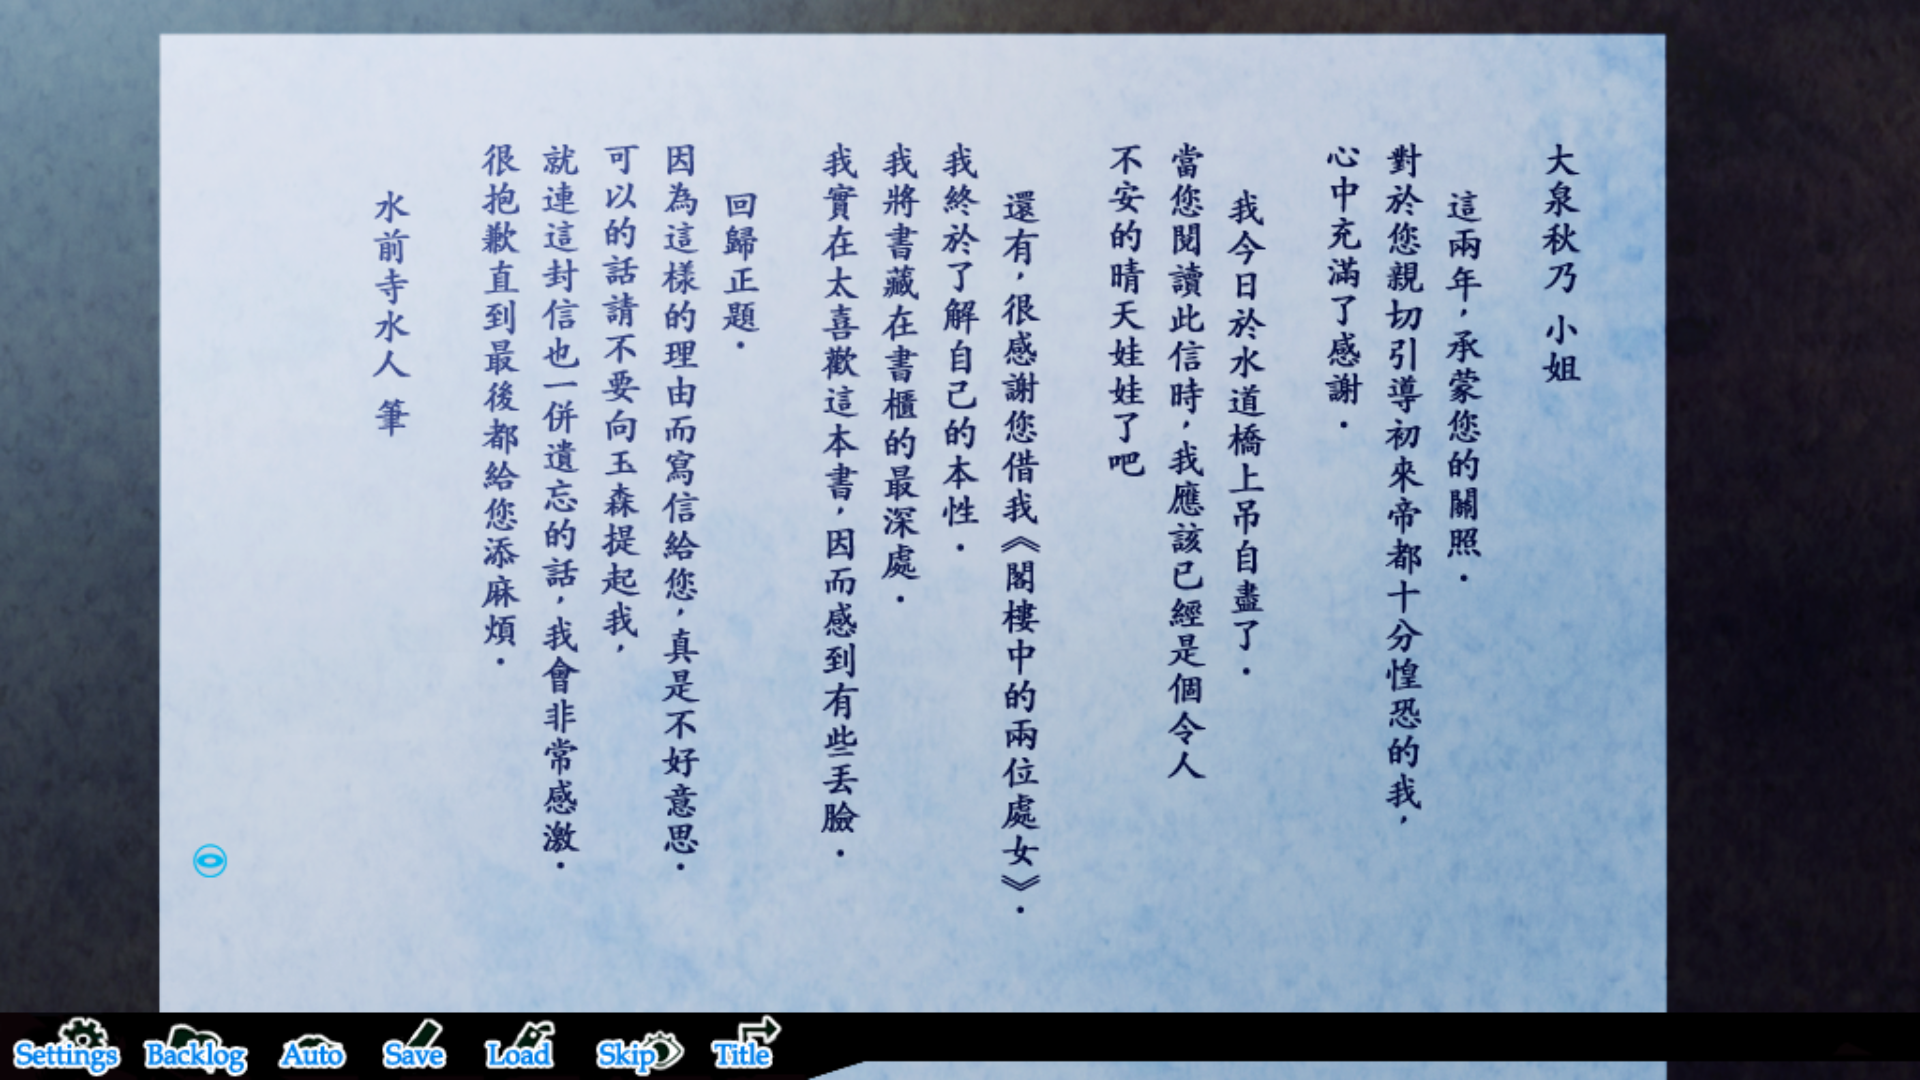 大泉秋乃 小姐
這兩年，承蒙您的關照．
對於您親切引導初來帝都十分惶恐的我，
心中充滿了感謝．
我今日於水道橋上吊自盡了．
當您閱讀此信時，我應該已經是個令人
不安的晴天娃娃了吧
還有，很感謝您借我《閣樓中的兩位處女》．
我終於了解自己的本性．
我將書藏在書櫃的最深處．
我實在太喜歡這本書，因而感到有些丟臉．
回歸正題．
因為這樣的理由而寫信給您，真是不好意思．
可以的話請不要向玉森提起我，
就連這封信也一併遺忘的話，我會非常感激．
很抱歉直到最後都給您添麻煩．
水前寺水人 筆
Settings Backlog Auto Save Load Skip Title